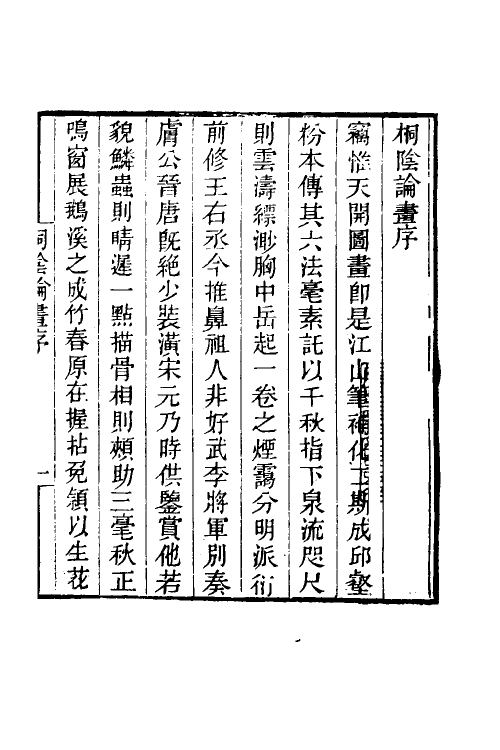 桐陰論畫序
竊惟天開圖畫卽是江山筆補化工斯成邱壑
粉本傳其六法毫素託以千秋指下泉流咫尺
則雲濤縹渺胸中岳起一卷之煙靄分明派衍
前修王右丞今推鼻祖人非好武李將軍別奏
膚公晉唐旣絕少裝潢宋元乃時供鑒賞他若
貌鱗蟲則睛遲一點描骨相則頰助三毫秋正
鳴窗展鵝溪之成竹春原在握拈兔領以生花
桐陰論畫序
一